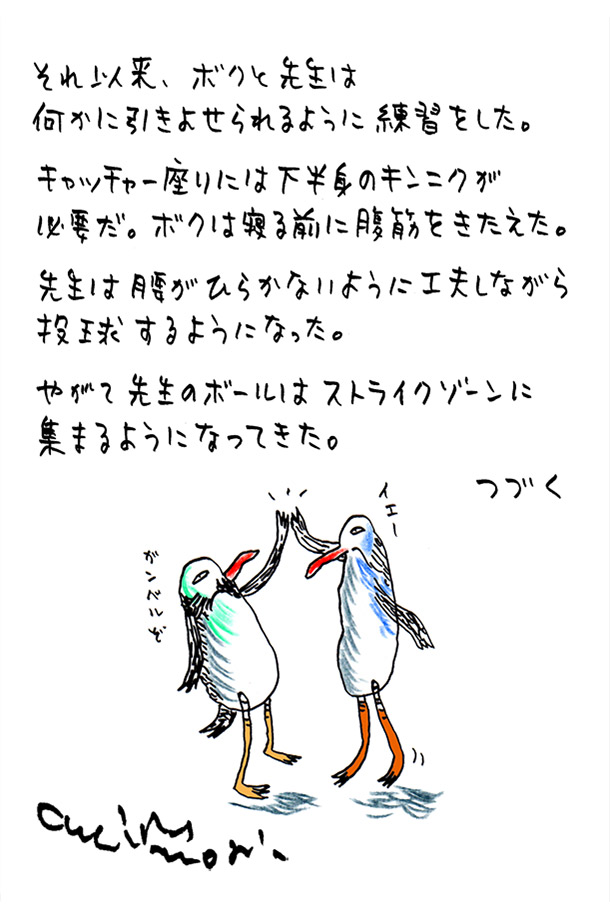 それ以来、ボクと先生は
何かに引きよせられるように練習をした。
キャッチャー座りには下半身のキンニクが
必要だ。ボクは寝る前に腹筋をきたえた。
先生は腰がひらかないように工夫しながら
投球するようになった。
やがて先生のボールはストライクゾーンに
集まるようになってきた。
つづく
イエー
ガンバルぞ